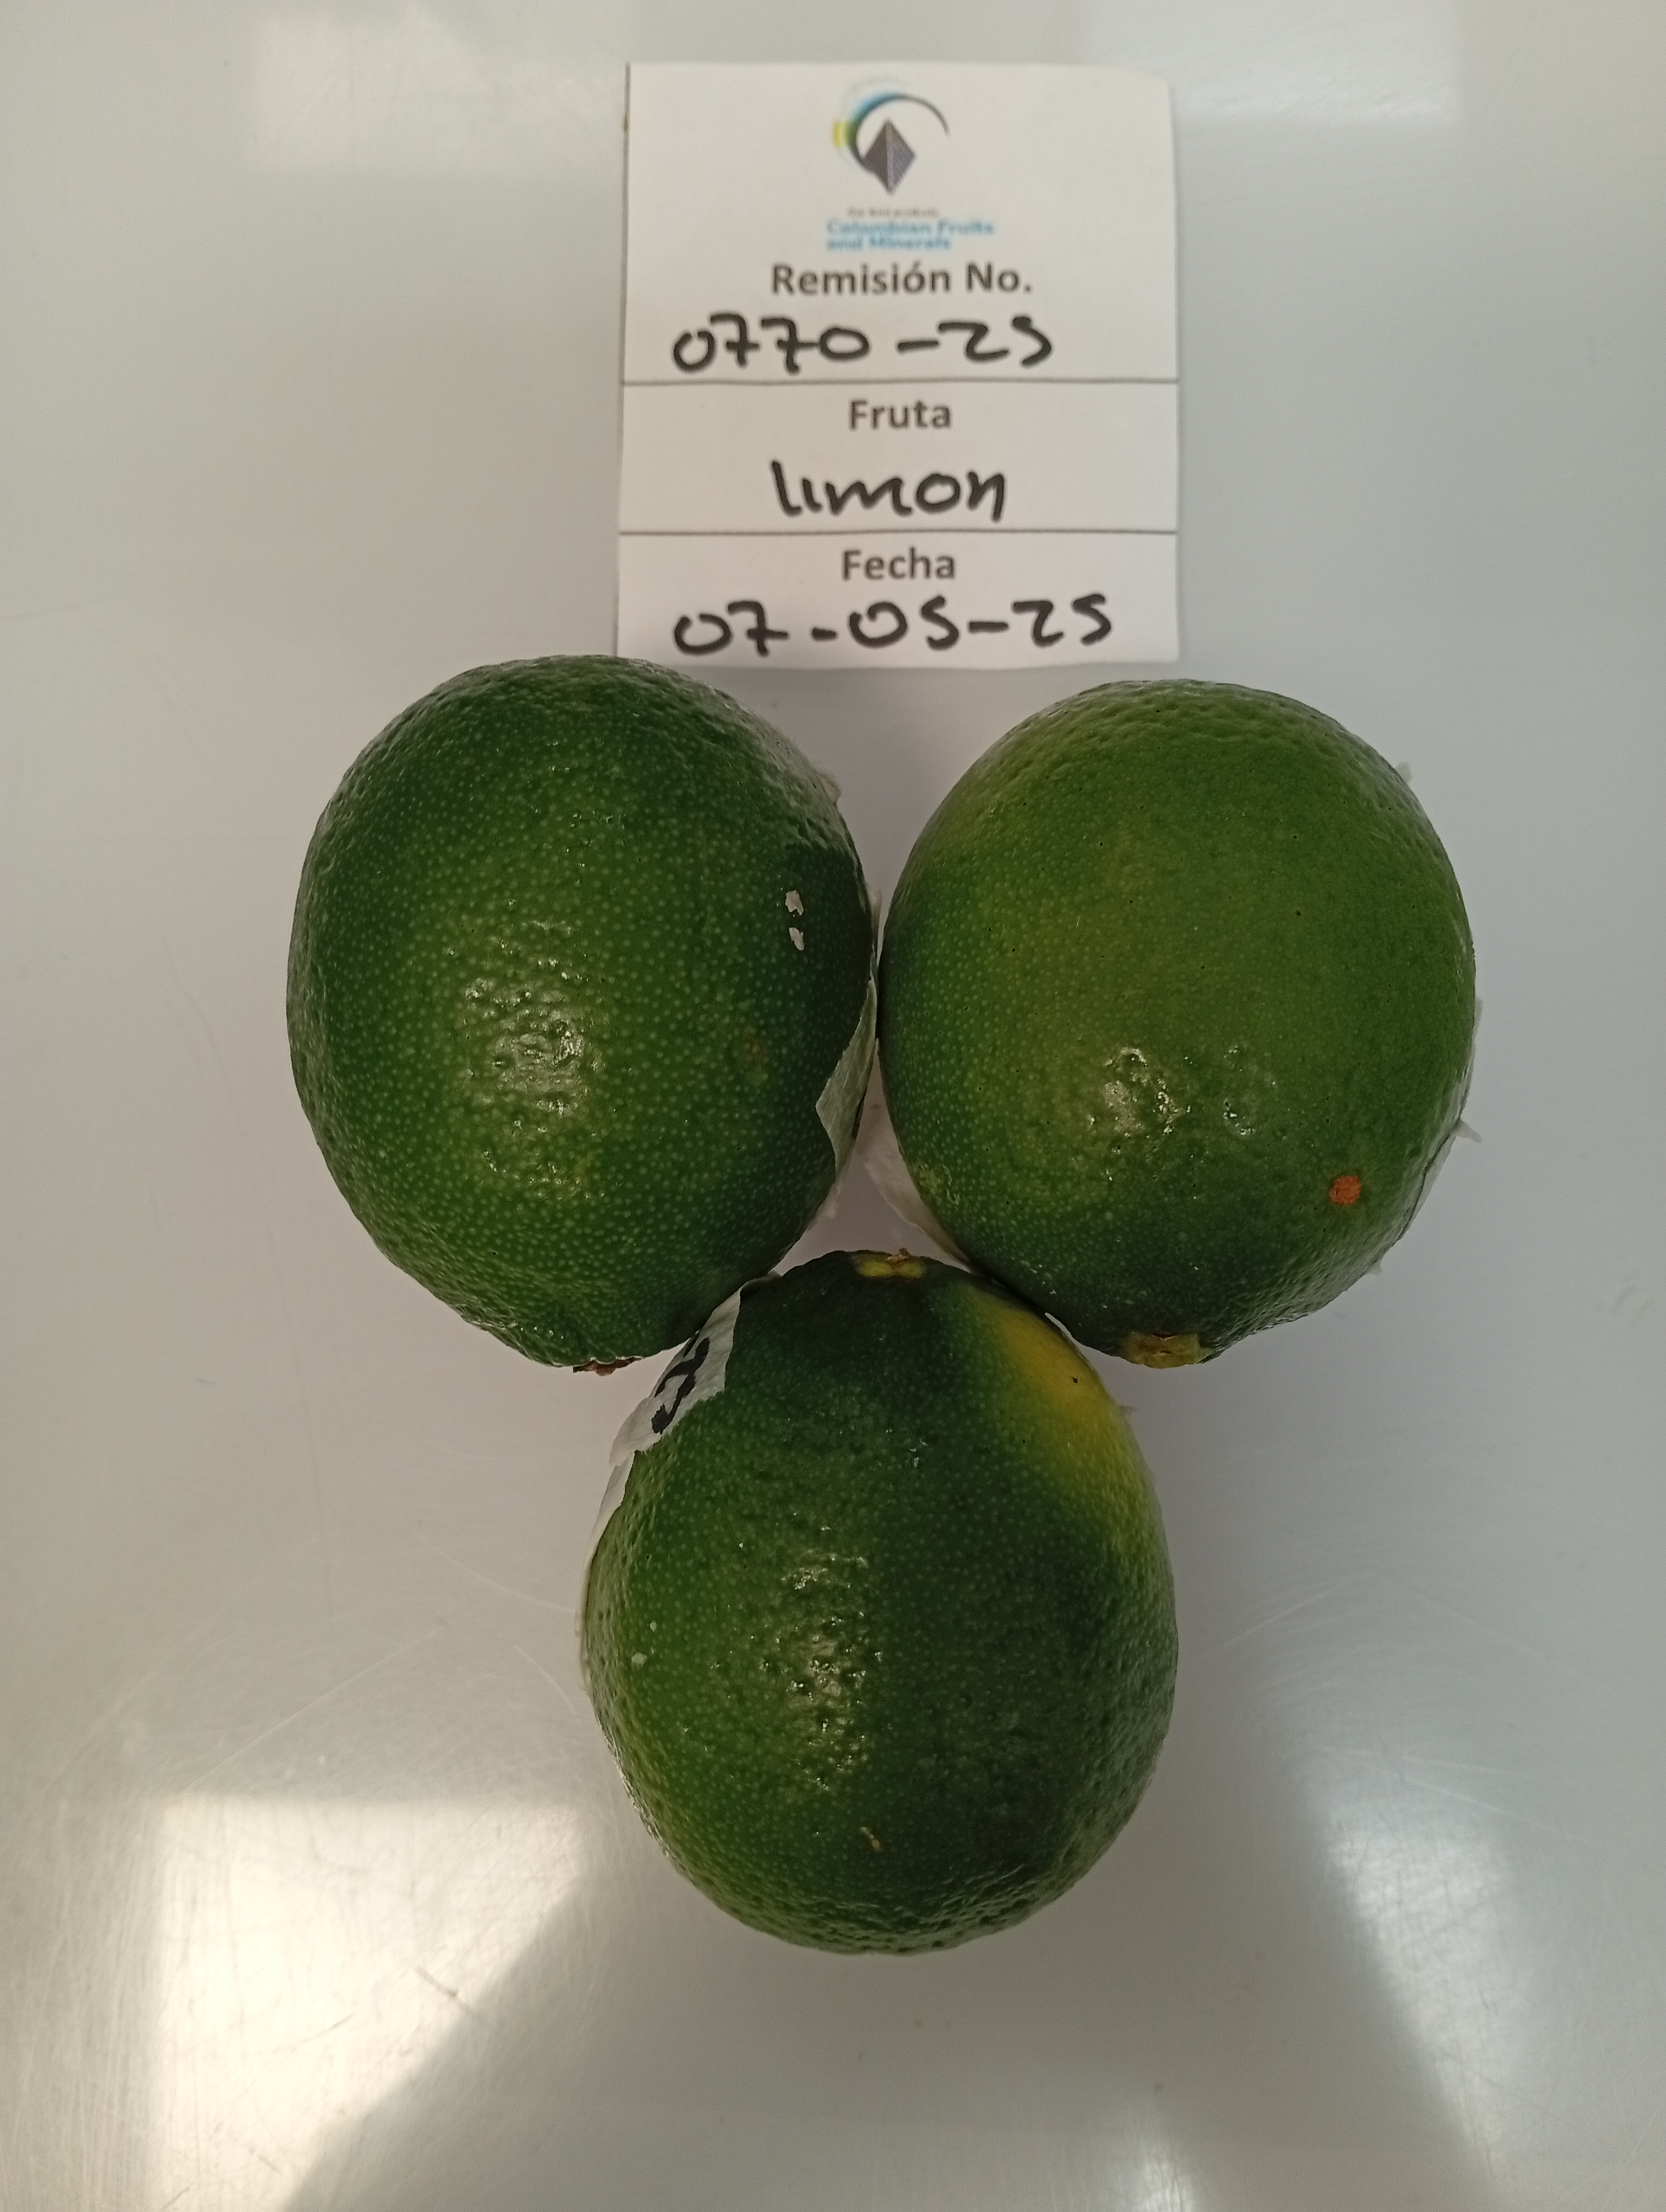 Colombian Fruits
and Minerals
Remisión No.
0770-25
Fruta
limon
Fecha
07-05-25